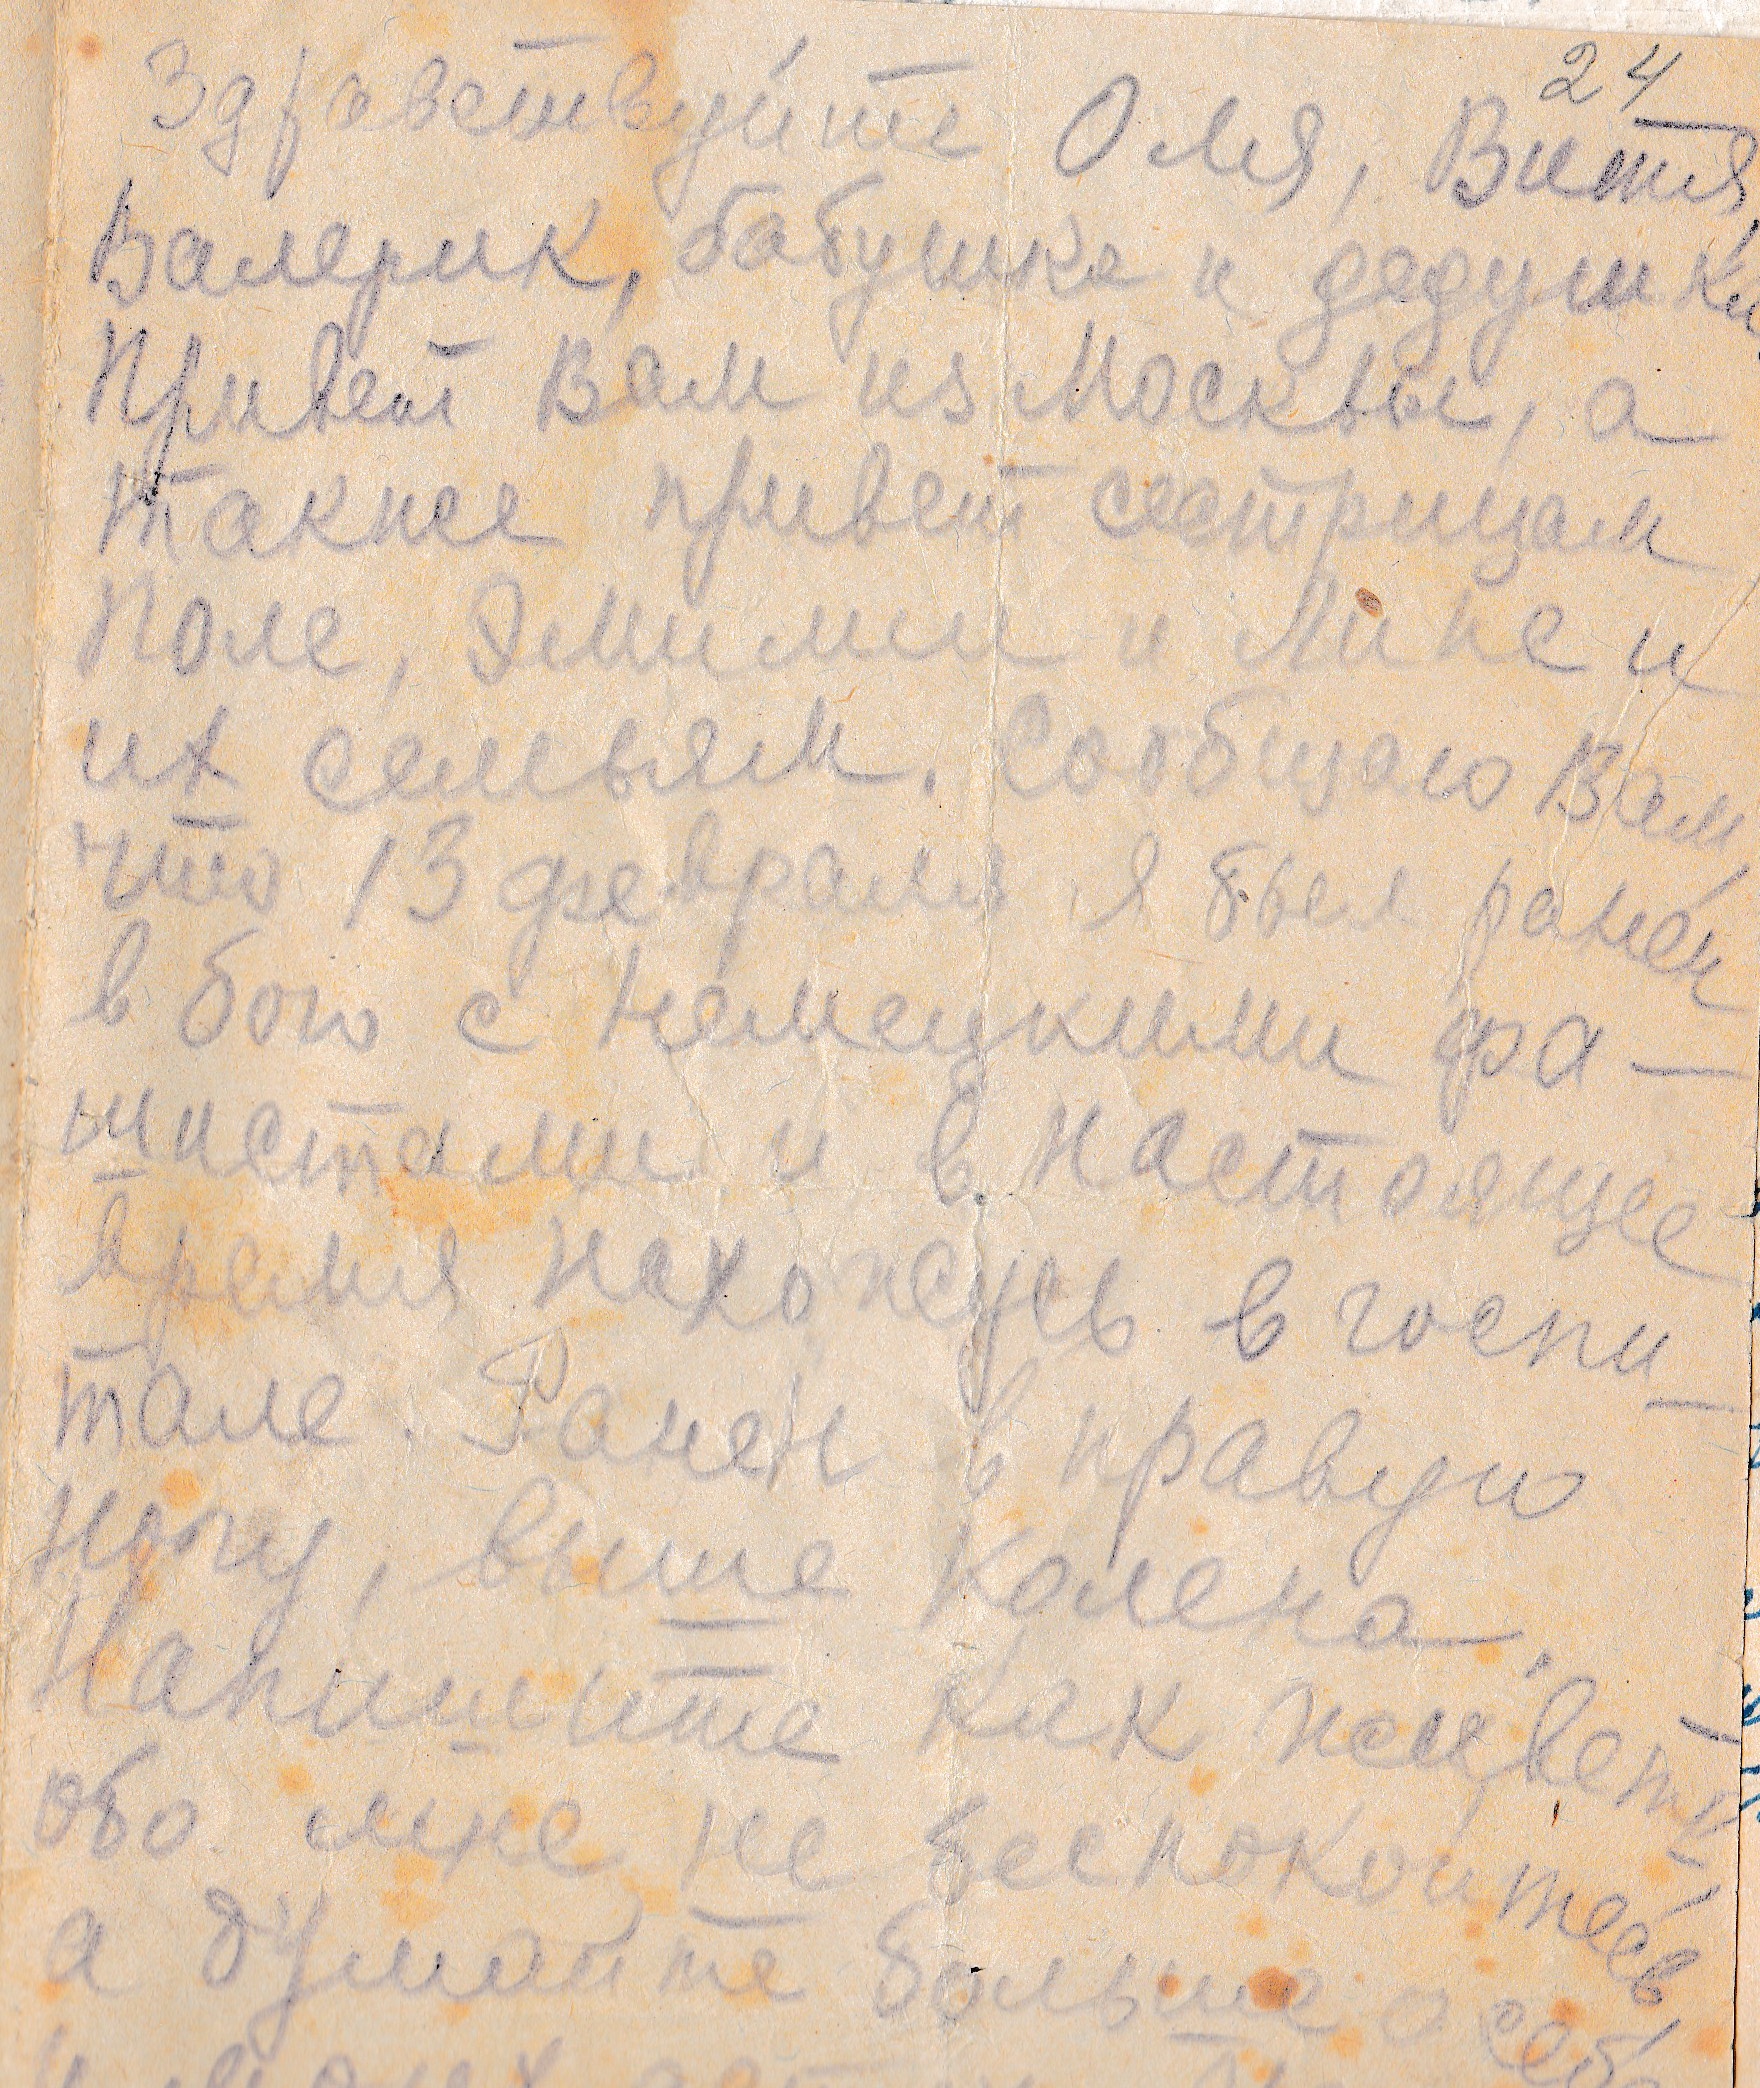 24
Здравствуйте Оля, Витя,
Валерик, бабушка и дедушка,
Привет Вам из Москвы, а
также привет сестрицам
Поле, Эмилии и Лине и
их семьям. Сообщаю Вам,
что 13 февраля я был ранен
в бою с немецкими фа-
шистами и в настоящее
время нахожусь в госпи-
тале. Ранен в правую
ногу, выше колена.
Напишите как живете
обо мне не беспокойтесь
а думайте больше о себе
и моих